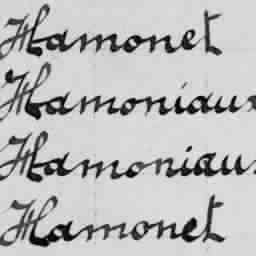 Hamonet
Hamoniaux
Hamoniaux
Hamonet